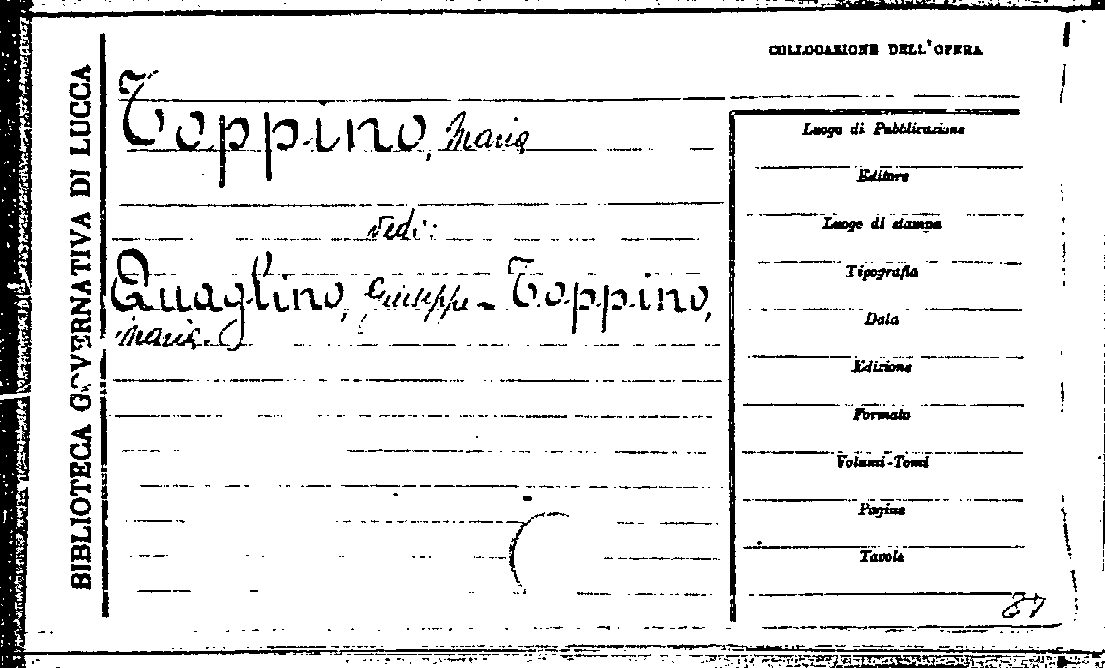 BIBLIOTECA GOVERNATIVA DI LUCCA
COLLOCAZIONE DELL'OPERA
Toppino, Maria
vedi:
Quaglino, Giuppe - Toppino,
Maria.
Luogo di Pubblicazione
Editore
Luogo di stampa
Tipografia
Data
Edizione
Formato
Volumi-Tomi
Pagine
Tavole
87